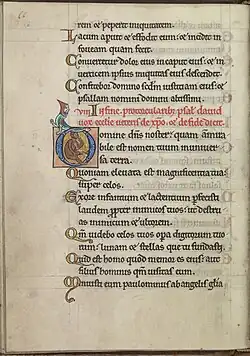 rem et peperit iniquitatem.
Lacum aperuit et effodit eum: et incidit in
foueam quam fecit.
Conuertetur dolor eius in caput eius: et in
uerticem ipsius iniquitas eius descendet.
Confitebor domino secundum iusticiam eius: et
psallam nomini domini altissimi.
viii In finem pro torcularibus psal' dauid
uox
Domine dns noster: quam admira
bile est nomen tuum in uniuer
sa terra.
Quoniam eleuata est magnificentia tua:
super celos.
Ex ore infantium et lactentium perfecisti
laudem propter inimicos tuos: ut destru
as inimicum et ultorem.
Qm uidebo celos tuos opa digitorum tuo
rum: lunam et stellas que tu fundasti.
Quid est homo quod memor es eius: aut
filius hominis qm uisitas eum.
Minuisti eum paulominus ab angelis glia